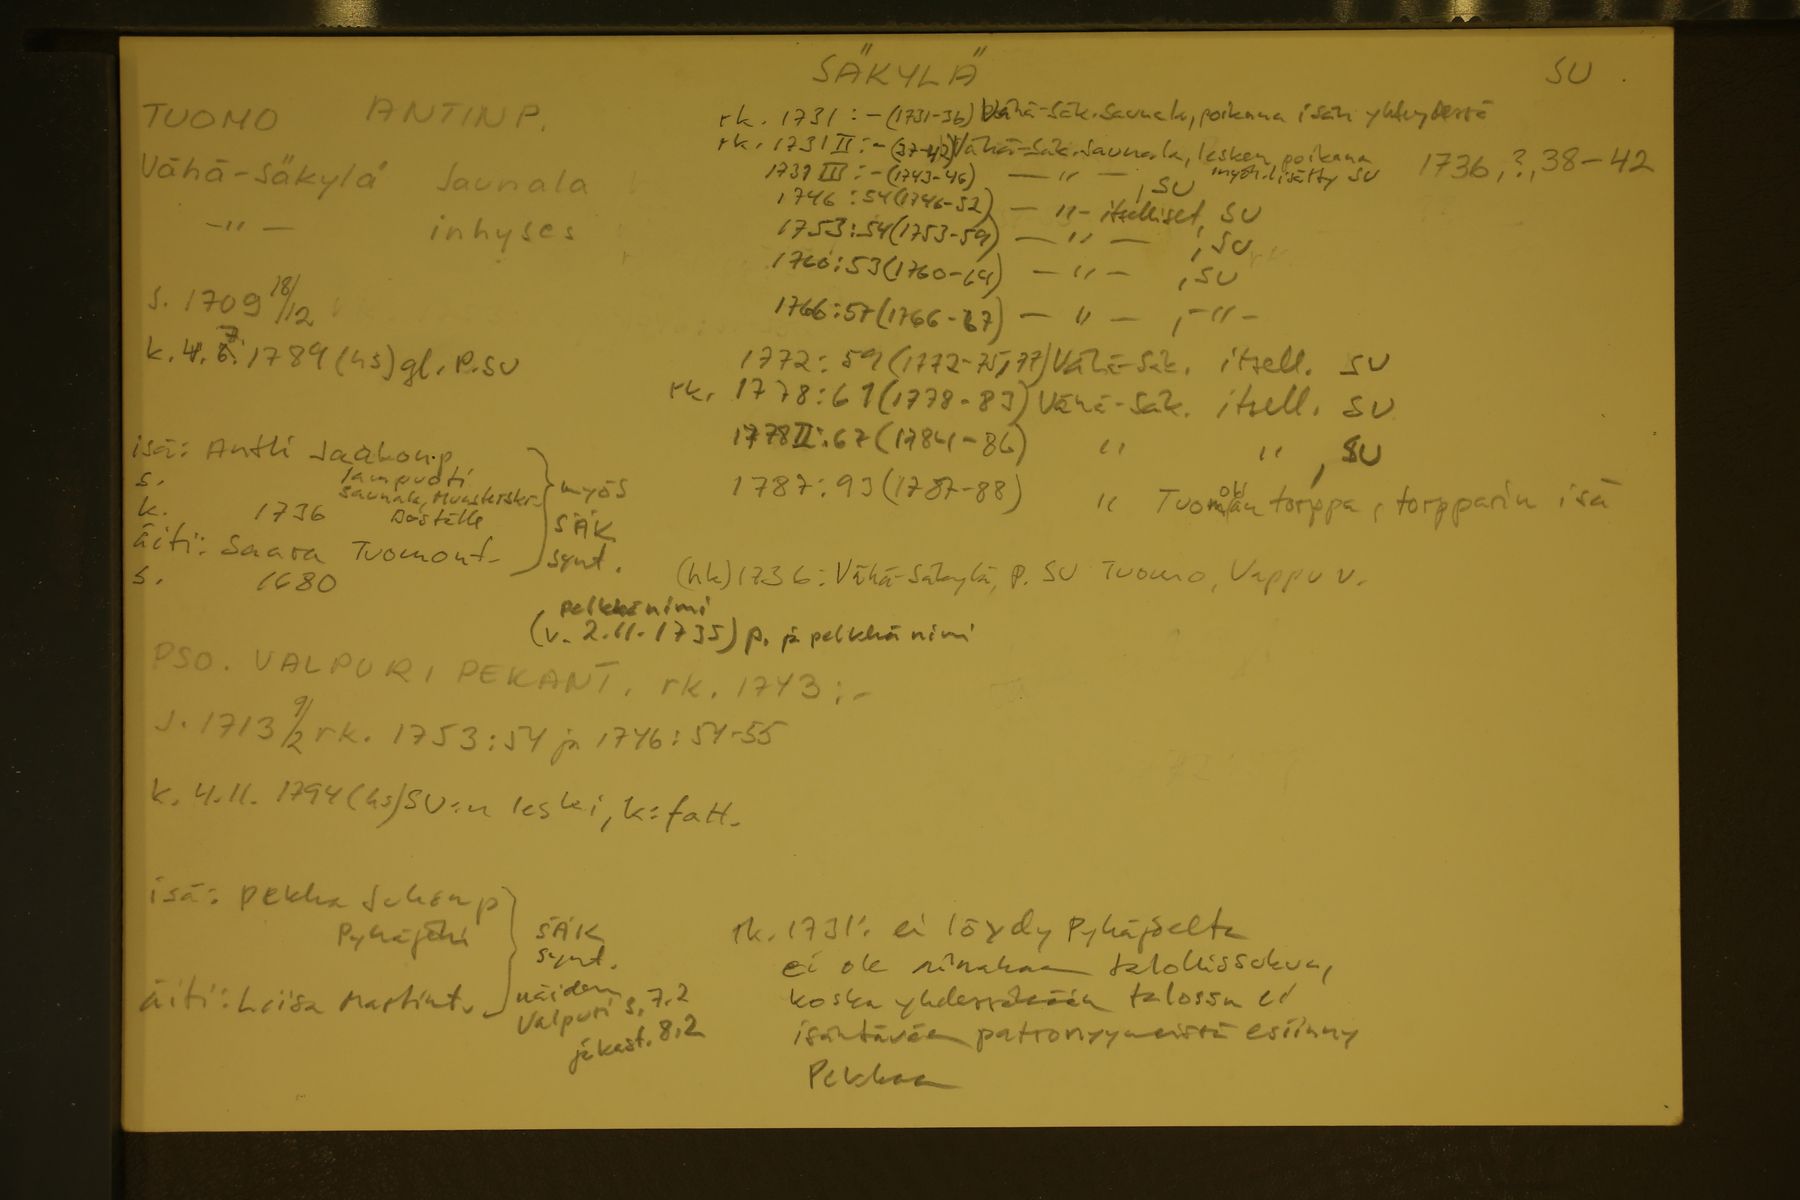 SÄKYLÄ
SU
TUOMO ANTINP.
Vähä-Säkylä Saunala
-"- inhyses
s. 1709 18/12
k. 4. 7. 1789 (hs) gl. P. SU
rk. 1731 : - (1731-36) Vähä-Säk. Saunala, poikana isän yhteydessä
rk. 1731 II : - (37-42) Vähä-Säk. Saunala, lesken poikana
myöh. lisätty SU
1736, ?, 38-42
1739 III : - (1743-46) -"- , SU
1746 : 54 (1746-52) -"- itselliset, SU
1753 : 54 (1753-59) -"- , SU
1760 : 53 (1760-64) -"- , SU
1766 : 57 (1766-67) -"- , -"-
1772 : 59 (1772-75, 77) Vähä-Säk. itsell. SU
rk. 1778 : 61 (1778-83) Vähä-Säk. itsell. SU
1778 II : 67 (1784-86) " " , SU
1787 : 93 (1787-88) " Tuomolan torppa, torpparin isä
isä: Antti Jaakonp
s. lampuoti
Saunala,
k. 1736 Döställe
äiti: Saara Tuomont.
s. 1680
myös
SÄK
synt.
(hk) 1736 : Vähä-Säkylä, P. SU Tuomo, Vappu v.
pelkkä nimi
(v. 2.11.1735) p. ja pelkkä nimi
PSO. VALPURI PEKANT. rk. 1743 : -
s. 1713 9/2 rk. 1753 : 54 ja 1746 : 54-55
k. 4.11. 1794 (hs) SU:n leski, k: fatt.
isä: Pekka Juhonp
Pyhäjoki
äiti: Liisa Martint.
SÄK
synt.
näiden
Valpuri s. 7.2
ja kast. 8.2
rk. 1731: ei löydy Pyhäjoelta
ei ole talollissukua,
koska yhdessäkään talossa ei
isäntävään patronyymeistä esiinny
Pekkaa